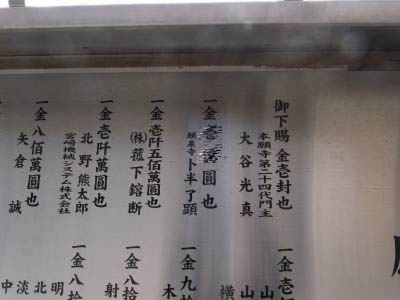 御下賜 金壱封也
本願寺第二十四代門主
大谷光真
圓也
願泉寺
卜半了顕
一金壱阡五百萬圓也
(株)菰下鎔断
一金壱阡萬圓也
北野熊太郎
宮崎機械システム株式会社
一金八百萬圓也
矢倉 誠
一金壱
山
山
横
一金九拾
木
一金八拾
射
一金八拾
明
北
淡
中